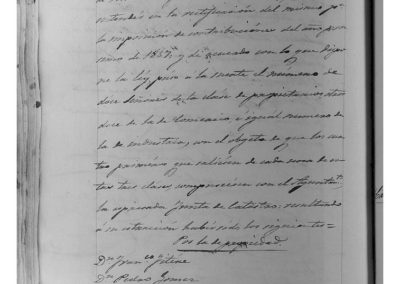 entender en la rectificación del mismo pª
la imposición de contribuciones del año pro
ximo de 1857, y de acuerdo con lo que dispo
ne la ley, puso a la mente el número de
doce Señores de la clase de propietarios, otros
doce de la de Comercio, e igual número de
la de industria, con el objeto de que los cua
tro primeros que salieren de cada una de es
tas tres clases compusiesen con el Ayuntamto
la espresada Junta de Catastro: resultando
a su estraccion habidos los siguientes=
Por la de propiedad.
Dn Franco
Dn Pedro Gomez